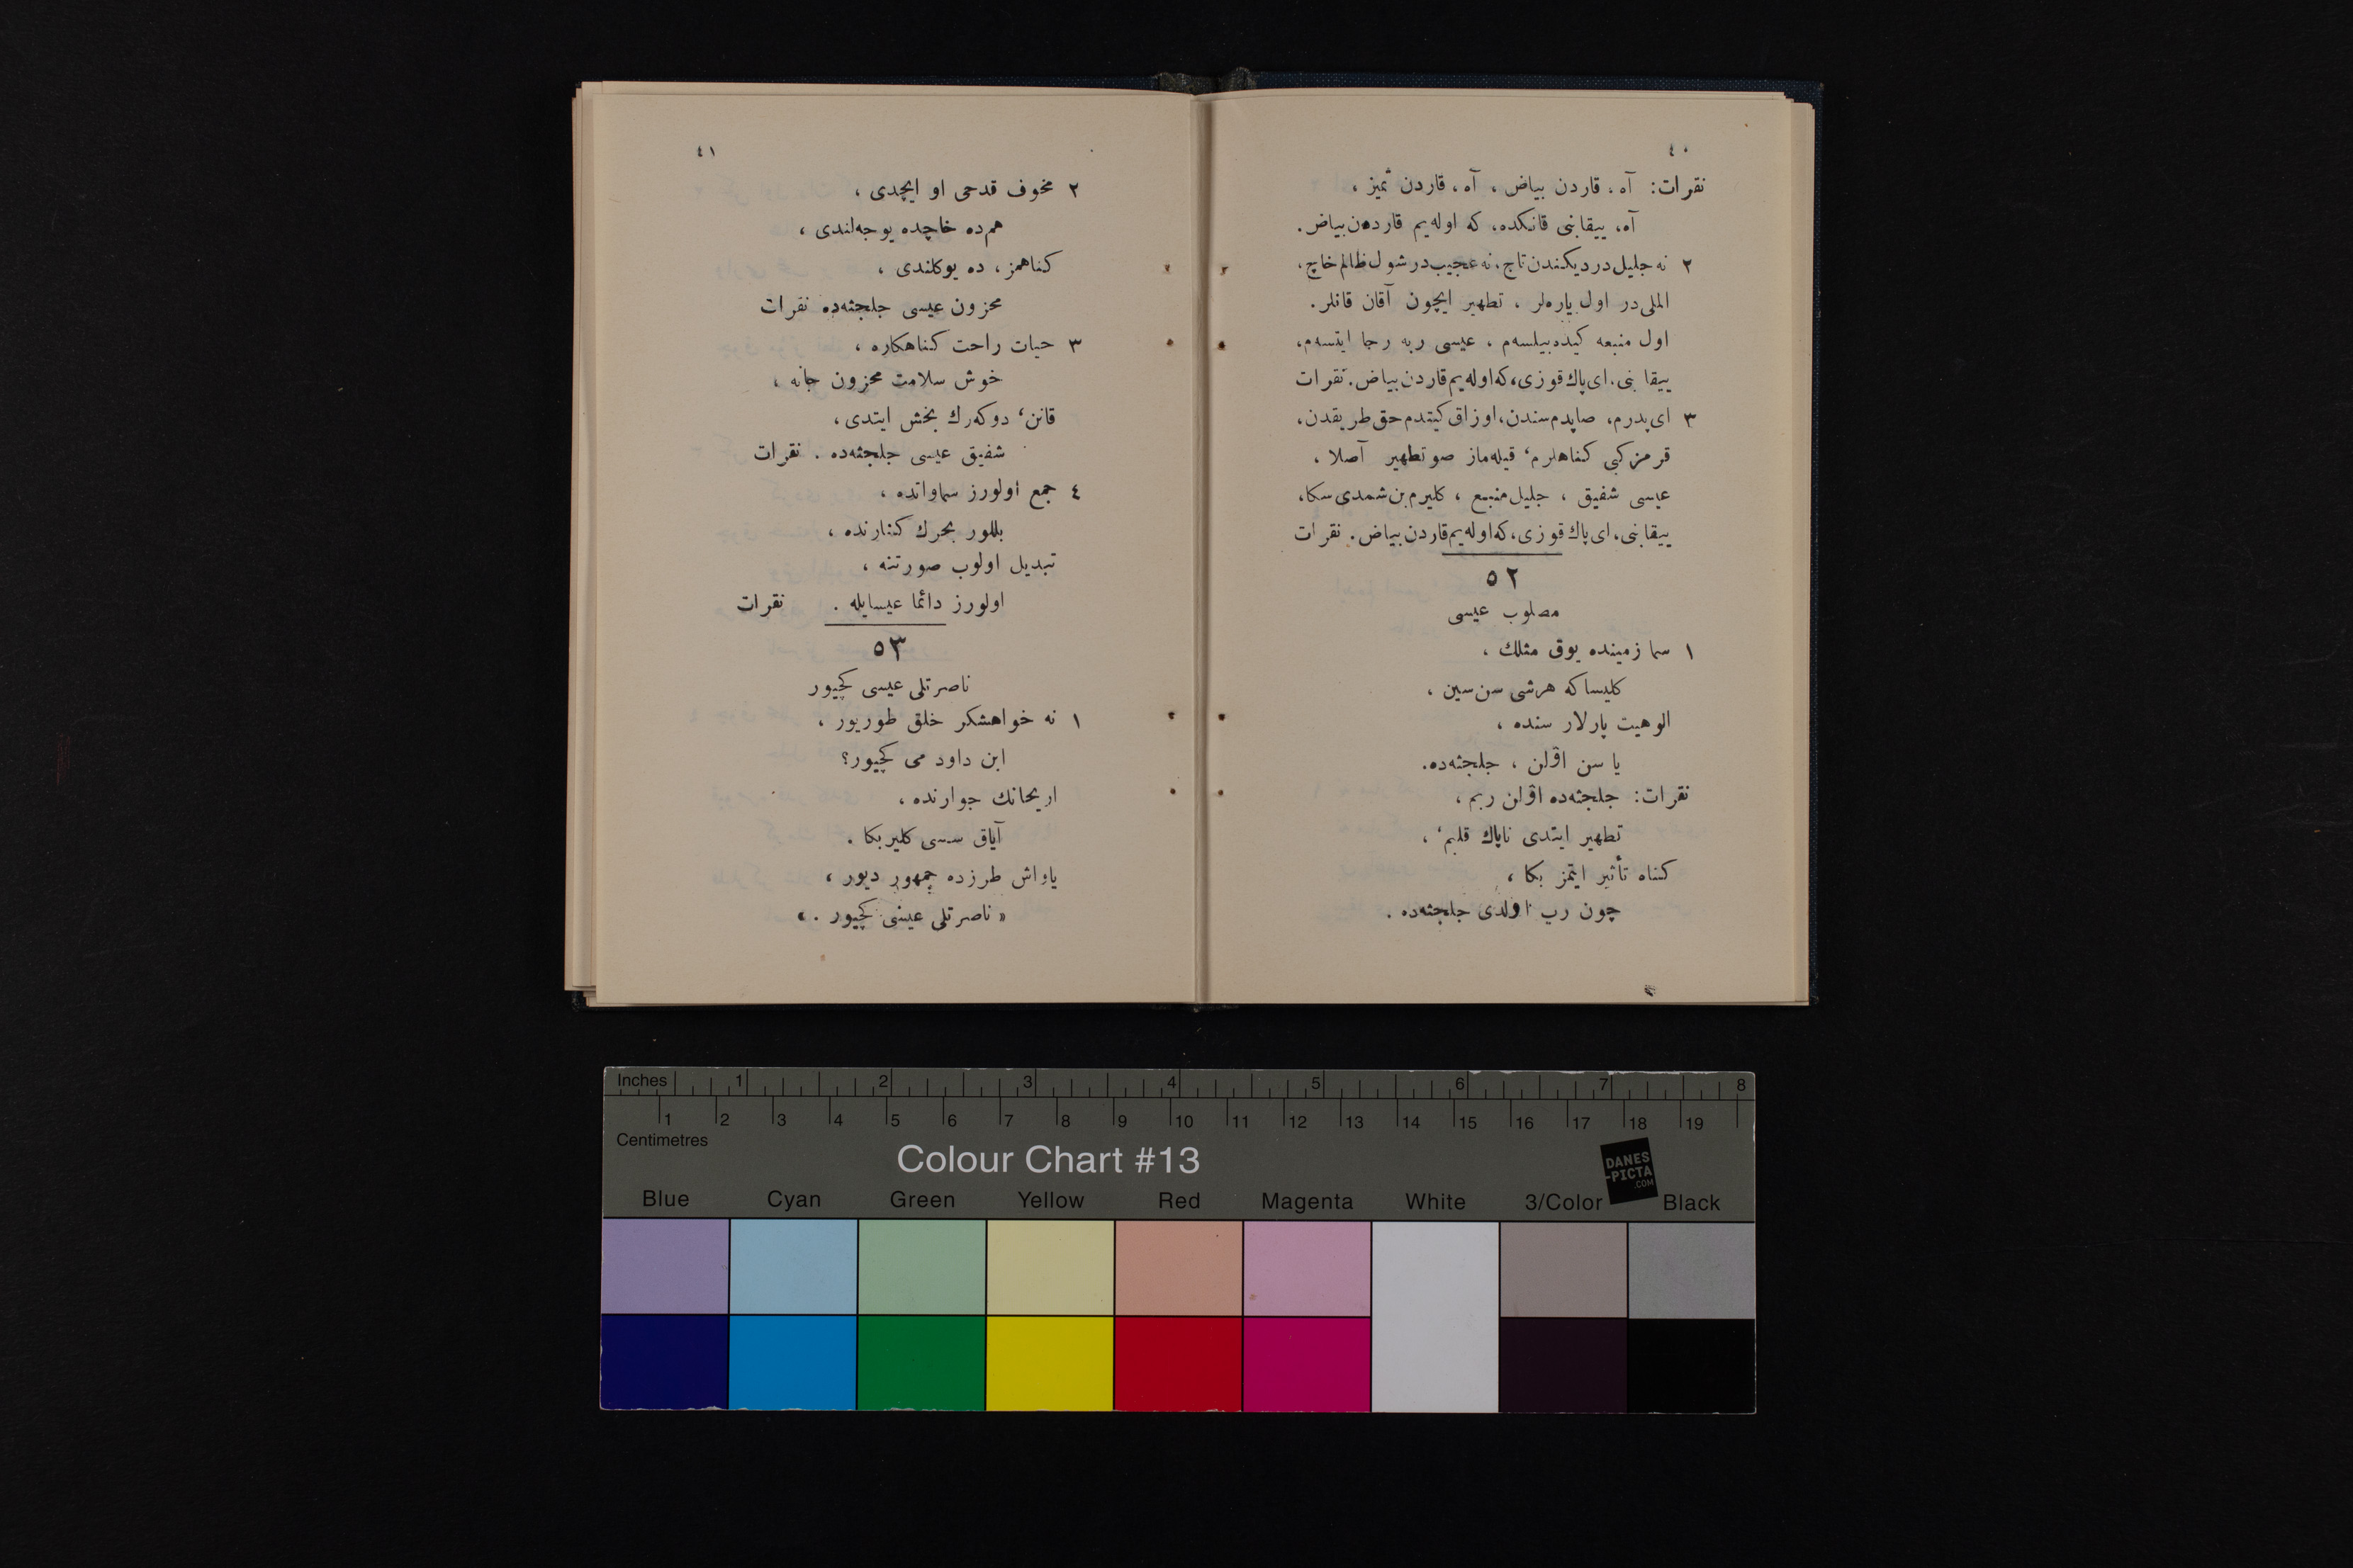 ٤٠
نقرات: آه، قاردن بیاض، آه، قاردن تمیز،
آه، ییقا بنی قانکده، که اوله یم قاردن بیاض.
٢ نه جلیل در دیکندن تاج، نه عجیب در شول ظالم خاچ،
الملی در اول یاره لر، تطهیر ایچون آقان قانلر.
اول منبعه کیده بیلسه م، عیسی ربه رجا ایتسه م،
ییقا بنی، ای پاك قوزی، که اوله یم قاردن بیاض. نقرات
٣ ای پدرم، صاپدم سندن، اوزاق کیتدم حق طریقدن،
قرمز کبی کناهلرم، قیله ماز صو تطهیر آصلا،
عیسی شفیق، جلیل منبع، کلیرم بن شمدی سکا،
ییقا بنی، ای پاك قوزی، که اوله یم قاردن بیاض. نقرات
٥٢
مصلوب عیسی
١ سما زمینده یوق مثلك،
کلیسا که هرشی سن سین،
الوهیت پارلار سنده،
یا سن اۇلن، جلجثه ده.
نقرات: جلجثه ده اۇلن ربم،
تطهیر ایتدی ناپاك قلبم،
کناه تأثیر ایتمز بکا،
چون رب اۇلدی جلجثه ده.
٤١
٢ مخوف قدحی او ایچدی،
هم ده خاچده یوجه لندی،
کناهمز، ده یوکلندی،
محزون عیسی جلجثه ده نقرات
٣ حیات راحت کناهکاره،
خوش سلامت محزون جانه،
قانن، دوکه رك بخش ایتدی،
شفیق عیسی جلجثه ده. نقرات
٤ جمع اولورز سماواتده،
بللور بحرك کنارنده،
تبدیل اولوب صورتنه،
اولورز دائما عیسایله. نقرات
٥٣
ناصرتلی عیسی کچیور
١ نه خواهشکر خلق طوریور،
ابن داود می کچیور؟
اریحانك جوارنده،
آیاق سسی کلیر بکا.
یاواش طرزده جمهور دیور،
« ناصرتلی عیسی کچیور. »
Inches 1 2 3 4 5 6 7 8
1 2 3 4 5 6 7 8 9 10 11 12 13 14 15 16 17 18 19
Centimetres
Colour Chart #13
DANES
-PICTA
.COM
Blue Cyan Green Yellow Red Magenta White 3/Color Black